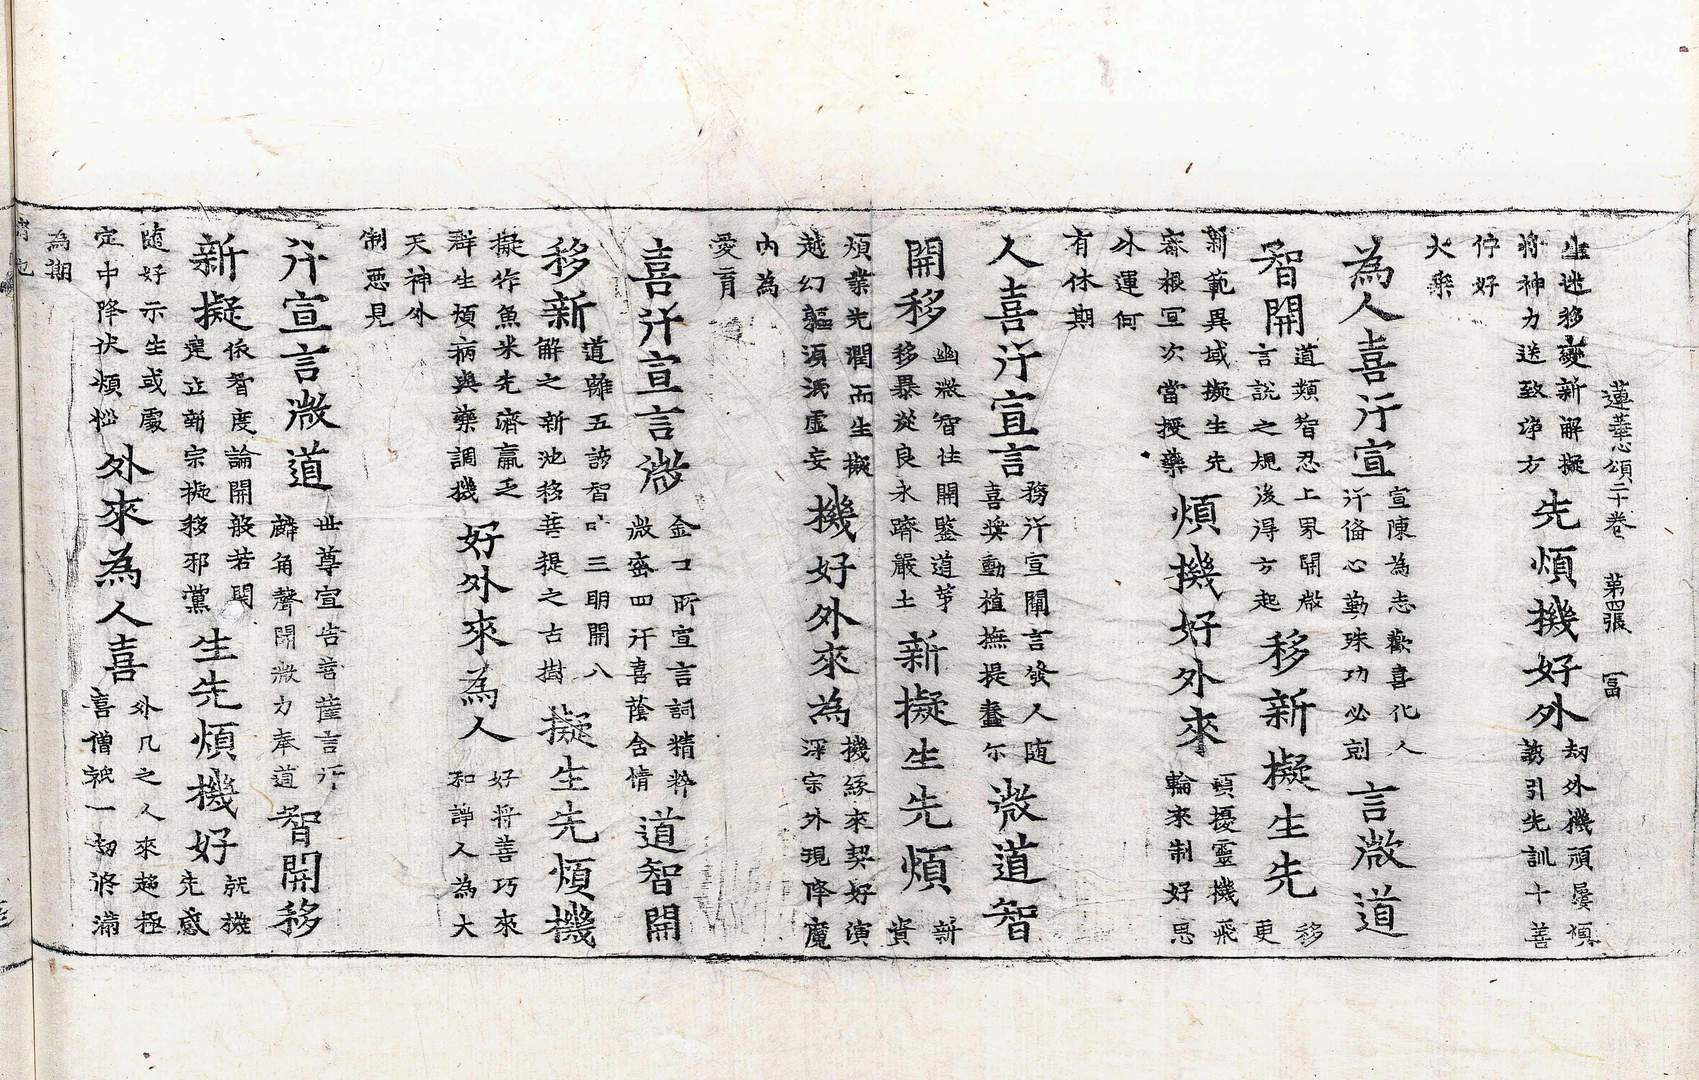 蓮華心頌二十卷 第四張 冨
生迷移變新解擬
將神力送致淨方
先煩機好外
劫外機頑屢惧
誘引先訓十善
佇好
火藥
為人喜汙宣
宣陳為志歡喜化人
汙俻心勤殊功必剋
言微道
智開
道類智忍上界開啟
言說之規後得方起
移新擬生先
移
更
新範異域擬生先
審根冝次當授藥
煩機好外來
煩擾靈機飛
輪來制好思
外運何
有休期
人喜汙宣言
務汙宣闡言發人随
喜奨動植撫提蠢尓
微道智
開移
幽微智往開鑒道芽
移暴從良永躋嚴土
新擬生先煩
新
資
煩業先潤而生擬
越幻軀湏洒虛妄
機好外來為
機緣來契好演
深宗外現降魔
內為
愛育
喜汙宣言微
金口所宣言詞精粹
微密四汙喜蔭含情
道智開
移新
道雖五諦智㕥三明開八
解之新池移菩提之古樹
擬生先煩機
擬作魚米先濟羸乏
群生煩病與藥調機
好外來為人
好將善巧來
和諍人為大
天神外
制惡見
汙宣言微道
世尊宣告菩薩言汙
麟角聲聞微力奉道
智開移
新擬
依智度論開般若関
建立新宗擬移邪黨
生先煩機好
就機
先惑
随好示生或處
定中降伏煩惱
外來為人喜
外凡之人來超極
喜僧祇一劫將滿
為期